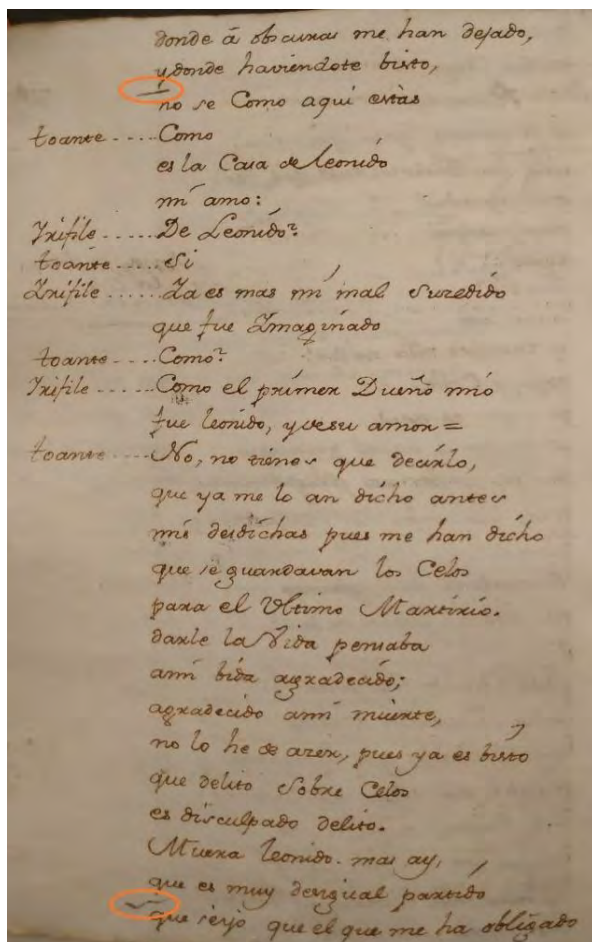 donde â obscuras me han dejado,
y donde haviendote bisto,
no se Como aqui estàs
toante ---- Como
es la Casa de Leonido
mi amo:
Irifile ----- De Leonido?
toante ---- Si
Irifile ----- Ya es mas mi mal Suzedido
que fue Imaginado
toante ---- Como?
Irifile ----- Como el primer Dueño mio
fue leonido, y de su amor =
toante ---- No, no tienes que decirlo,
que ya me lo an dicho antes
mis desdichas pues me han dicho
que se guardavan los Celos
para el Vltimo Martirio.
darle la Vida pensaba
ami bida agradecido;
agradecido ami muerte,
no lo he de azer, pues ya es bisto
que delito Sobre Celos
es disculpado delito.
Muera leonido. mas ay,
que es muy desigual partido
que el que me ha obligado